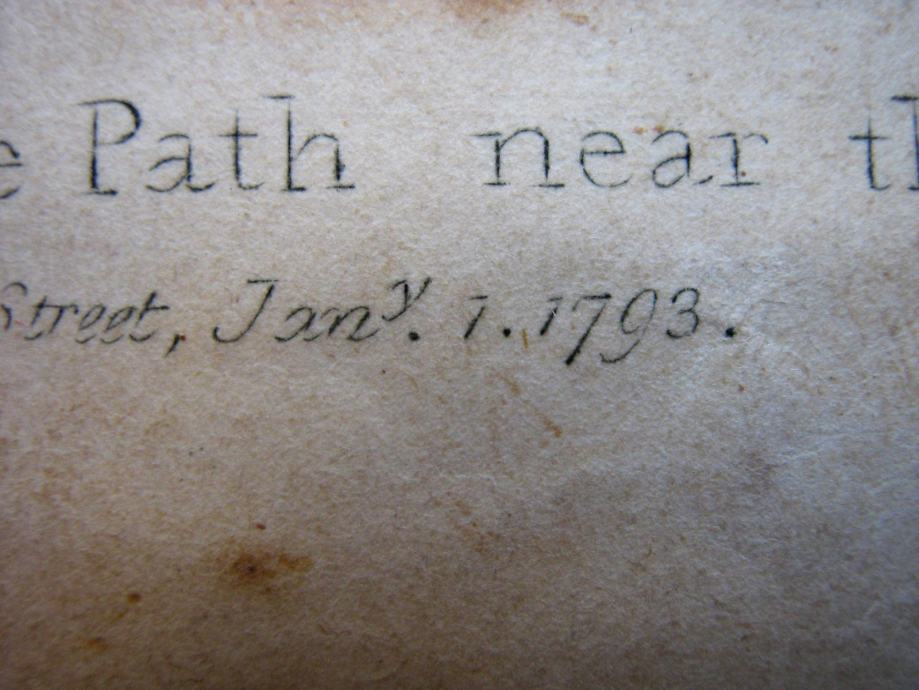 e Path near th
Street, Janʸ. 1. 1793.